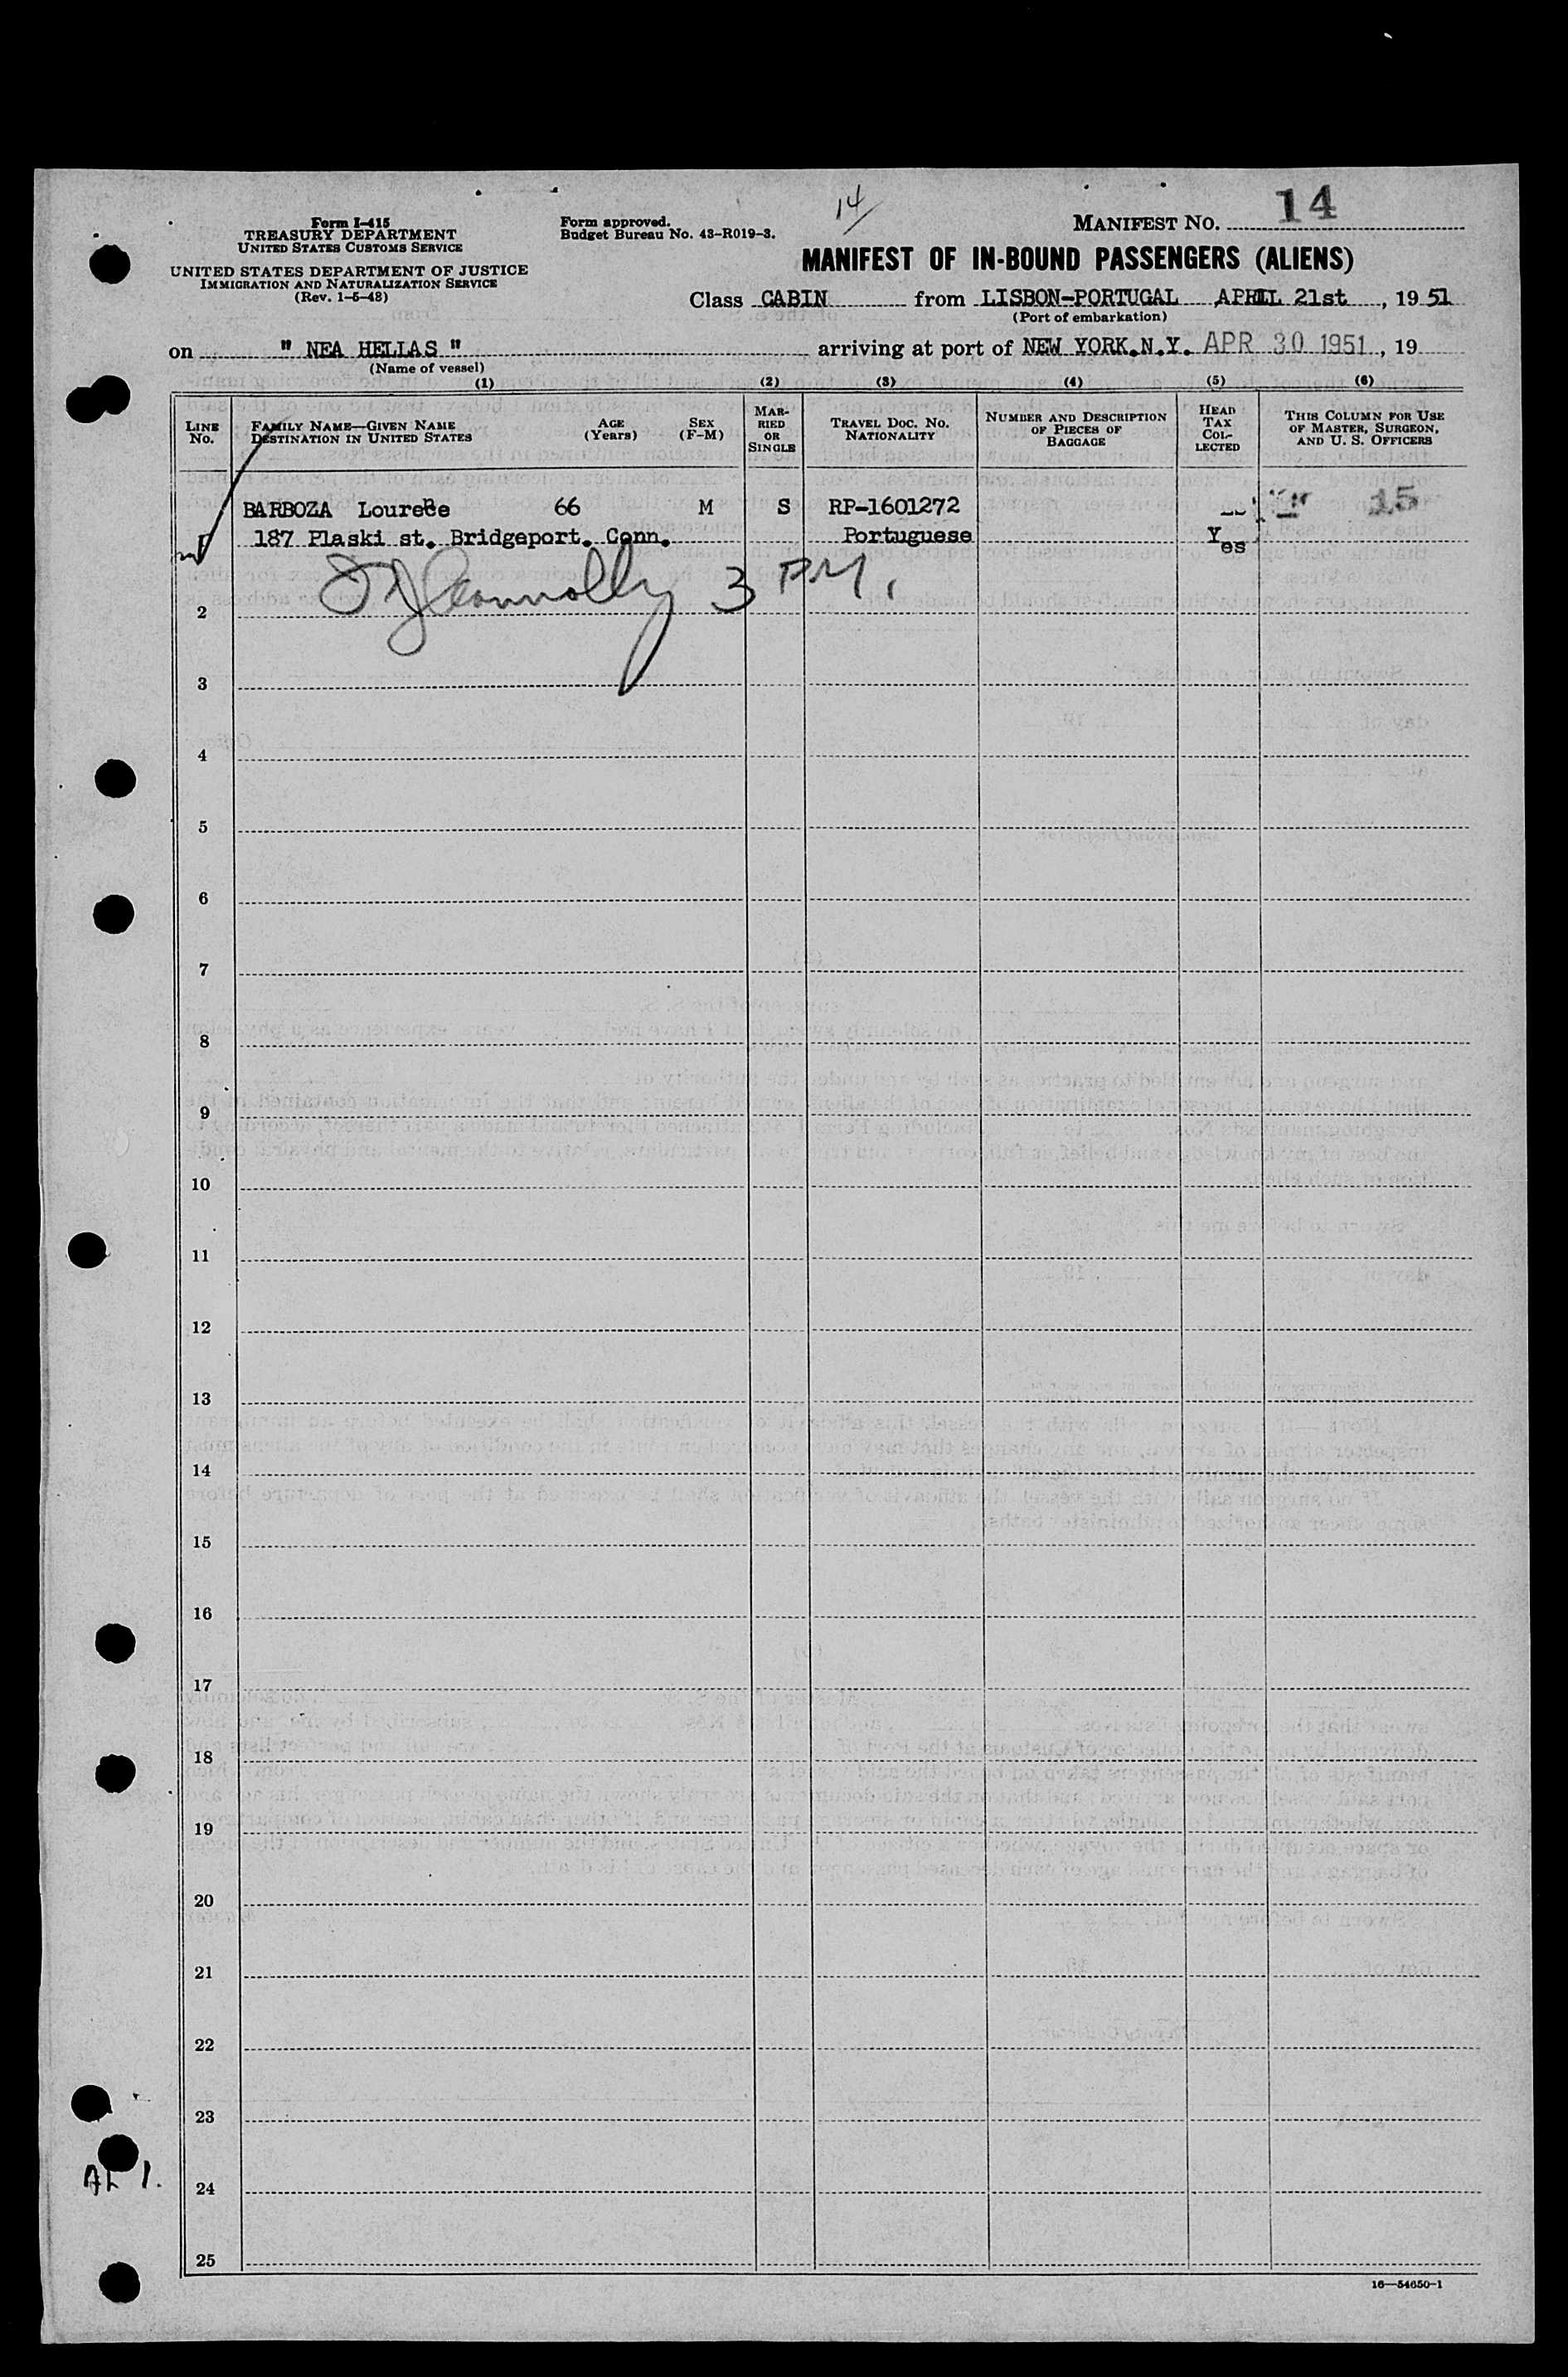 14
MANIFEST NO. 14
Form I-415
TREASURY DEPARTMENT
UNITED STATES CUSTOMS SERVICE
UNITED STATES DEPARTMENT OF JUSTICE
IMMIGRATION AND NATURALIZATION SERVICE
(Rev. 1-5-48)
Form approved.
Budget Bureau No. 43-R019-3.
MANIFEST OF IN-BOUND PASSENGERS (ALIENS)
Class CABIN from LISBON-PORTUGAL APRIL 21st, 1951
(Port of embarkation)
on " NEA HELLAS " arriving at port of NEW YORK.N.Y. APR 30 1951, 19
(Name of vessel)
(1) (2) (3) (4) (5) (6)
LINE No. FAMILY NAME—GIVEN NAME DESTINATION IN UNITED STATES AGE (Years) SEX (F-M) MARRIED OR SINGLE TRAVEL DOC. NO. NATIONALITY NUMBER AND DESCRIPTION OF PIECES OF BAGGAGE HEAD TAX COLLECTED THIS COLUMN FOR USE OF MASTER, SURGEON, AND U. S. OFFICERS
BARBOZA 66 M S RP-1601272 15
187 Plaski st. Bridgeport. Conn. Portuguese Yes
Connolly 3 PM.
2
3
4
5
6
7
8
9
10
11
12
13
14
15
16
17
18
19
20
21
22
23
24
25
16—54650-1